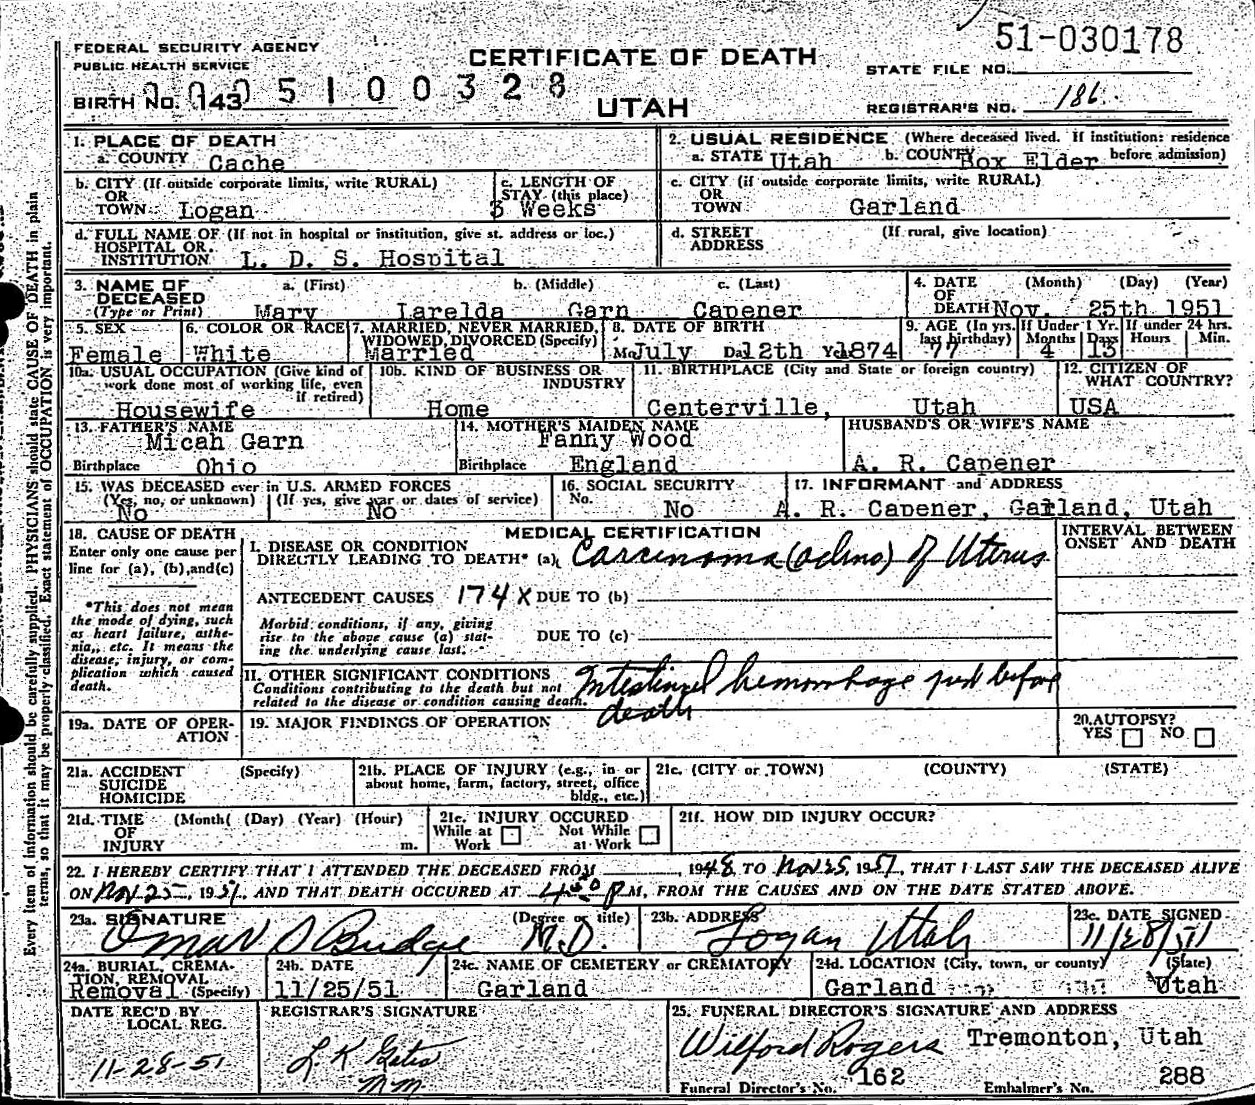 51-030178
FEDERAL SECURITY AGENCY
PUBLIC HEALTH SERVICE
CERTIFICATE OF DEATH
UTAH
STATE FILE NO.
BIRTH NO. 143 5100328
REGISTRAR'S NO. 186
1. PLACE OF DEATH
a. COUNTY Cache
2. USUAL RESIDENCE (Where deceased lived. If institution: residence before admission)
a. STATE Utah b. COUNTY Box Elder
b. CITY (If outside corporate limits, write RURAL)
OR
TOWN Logan
c. LENGTH OF
STAY (this place)
3 Weeks
c. CITY (if outside corporate limits, write RURAL)
OR
TOWN Garland
d. FULL NAME OF (If not in hospital or institution, give st. address or loc.)
HOSPITAL OR
INSTITUTION L. D. S. Hospital
d. STREET (If rural, give location)
ADDRESS
3. NAME OF a. (First) b. (Middle) c. (Last)
DECEASED
(Type or Print) Mary Larelda Garn Capener
4. DATE (Month) (Day) (Year)
OF
DEATH Nov. 25th 1951
5. SEX
Female
6. COLOR OR RACE
White
7. MARRIED, NEVER MARRIED,
WIDOWED, DIVORCED (Specify)
Married
8. DATE OF BIRTH
Mo July Da 12th Yr 1874
9. AGE (In yrs. last birthday) 77
If Under 1 Yr. Months 4 Days 13
If under 24 hrs. Hours Min.
10a. USUAL OCCUPATION (Give kind of
work done most of working life, even
if retired)
Housewife
10b. KIND OF BUSINESS OR
INDUSTRY
Home
11. BIRTHPLACE (City and State or foreign country)
Centerville, Utah
12. CITIZEN OF
WHAT COUNTRY?
USA
13. FATHER'S NAME
Micah Garn
Birthplace Ohio
14. MOTHER'S MAIDEN NAME
Fanny Wood
Birthplace England
HUSBAND'S OR WIFE'S NAME
A. R. Capener
15. WAS DECEASED ever in U.S. ARMED FORCES
(Yes, no, or unknown) (If yes, give war or dates of service)
No No
16. SOCIAL SECURITY
No. No
17. INFORMANT and ADDRESS
A. R. Capener, Garland, Utah
18. CAUSE OF DEATH
Enter only one cause per
line for (a), (b), and (c)
*This does not mean
the mode of dying, such
as heart failure, asthe-
nia, etc. It means the
disease, injury, or com-
plication which caused
death.
MEDICAL CERTIFICATION
INTERVAL BETWEEN
ONSET AND DEATH
I. DISEASE OR CONDITION
DIRECTLY LEADING TO DEATH* (a) Carcinoma (adeno) of Uterus
ANTECEDENT CAUSES 174X DUE TO (b)
Morbid conditions, if any, giving
rise to the above cause (a) stat-
ing the underlying cause last.
DUE TO (c)
II. OTHER SIGNIFICANT CONDITIONS
Conditions contributing to the death but not
related to the disease or condition causing death.
Intestinal hemorrhage just before
death
19a. DATE OF OPER-
ATION
19. MAJOR FINDINGS OF OPERATION
20. AUTOPSY?
YES NO
21a. ACCIDENT (Specify)
SUICIDE
HOMICIDE
21b. PLACE OF INJURY (e.g., in or
about home, farm, factory, street, office
bldg., etc.)
21c. (CITY or TOWN) (COUNTY) (STATE)
21d. TIME (Month( (Day) (Year) (Hour)
OF
INJURY m.
21e. INJURY OCCURED
While at Work Not While at Work
21f. HOW DID INJURY OCCUR?
22. I HEREBY CERTIFY THAT I ATTENDED THE DECEASED FROM , 1948 TO Nov 25, 1951, THAT I LAST SAW THE DECEASED ALIVE
ON Nov 25, 1951, AND THAT DEATH OCCURED AT 4:30 P M., FROM THE CAUSES AND ON THE DATE STATED ABOVE.
23a. SIGNATURE (Degree or title)
Omar S Budge M.D.
23b. ADDRESS
Logan Utah
23c. DATE SIGNED
11/28/51
24a. BURIAL, CREMA-
TION, REMOVAL
Removal (Specify)
24b. DATE
11/25/51
24c. NAME OF CEMETERY or CREMATORY
Garland
24d. LOCATION (City, town, or county) (State)
Garland Utah
DATE REC'D BY
LOCAL REG.
11-28-51
REGISTRAR'S SIGNATURE
L K Gates
mm
25. FUNERAL DIRECTOR'S SIGNATURE AND ADDRESS
Wilford Rogers Tremonton, Utah
Funeral Director's No. 162 Embalmer's No. 288
Every item of information should be carefully supplied. PHYSICIANS should state CAUSE OF DEATH in plain
terms, so that it may be properly classified. Exact statement of OCCUPATION is very important.